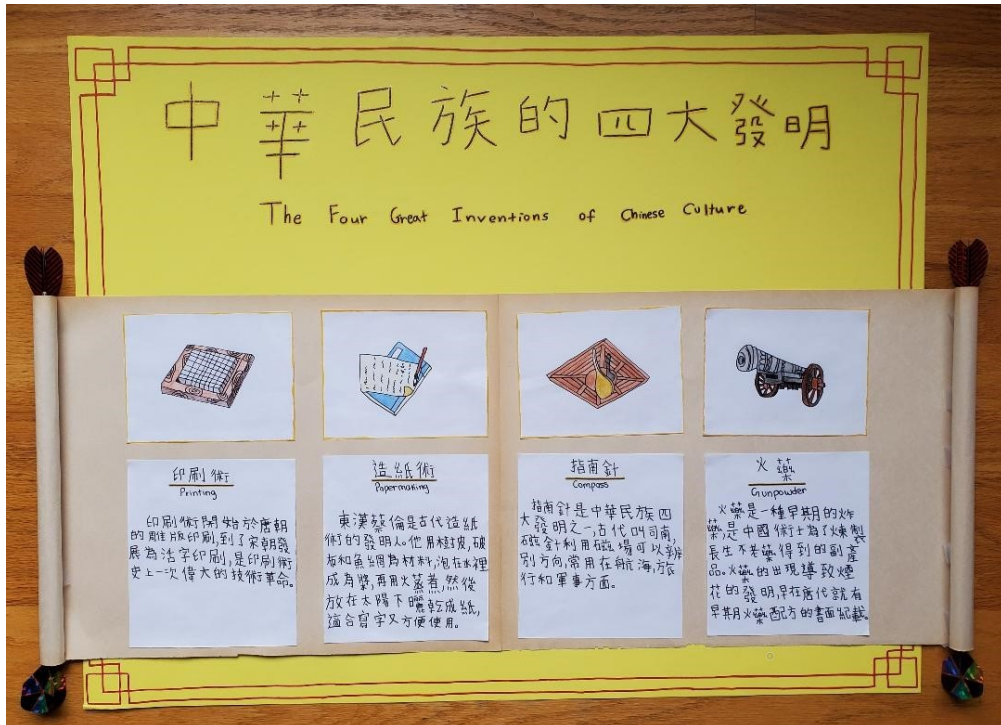 中華民族的四大發明
The Four Great Inventions of Chinese Culture
印刷術
Printing
印刷術開始於唐朝
的雕版印刷,到了宋朝發
展為活字印刷,是印刷術
史上一次偉大的技術革命。
造紙術
Papermaking
東漢蔡倫是古代造紙
術的發明人。他用樹皮,破
布和魚網為材料,泡在水裡
成為漿,再用火蒸煮,然後
放在太陽下曬乾成紙,
適合寫字又方便使用。
指南針
Compass
指南針是中華民族四
大發明之一,古代叫司南,
磁針利用磁場可以辨
別方向,常用在航海,旅
行和軍事方面。
火藥
Gunpowder
火藥是一種早期的炸
藥,是中國術士為了煉製
長生不老藥得到的副產
品。火藥的出現導致煙
花的發明,早在唐代就有
早期火藥配方的書面紀載。